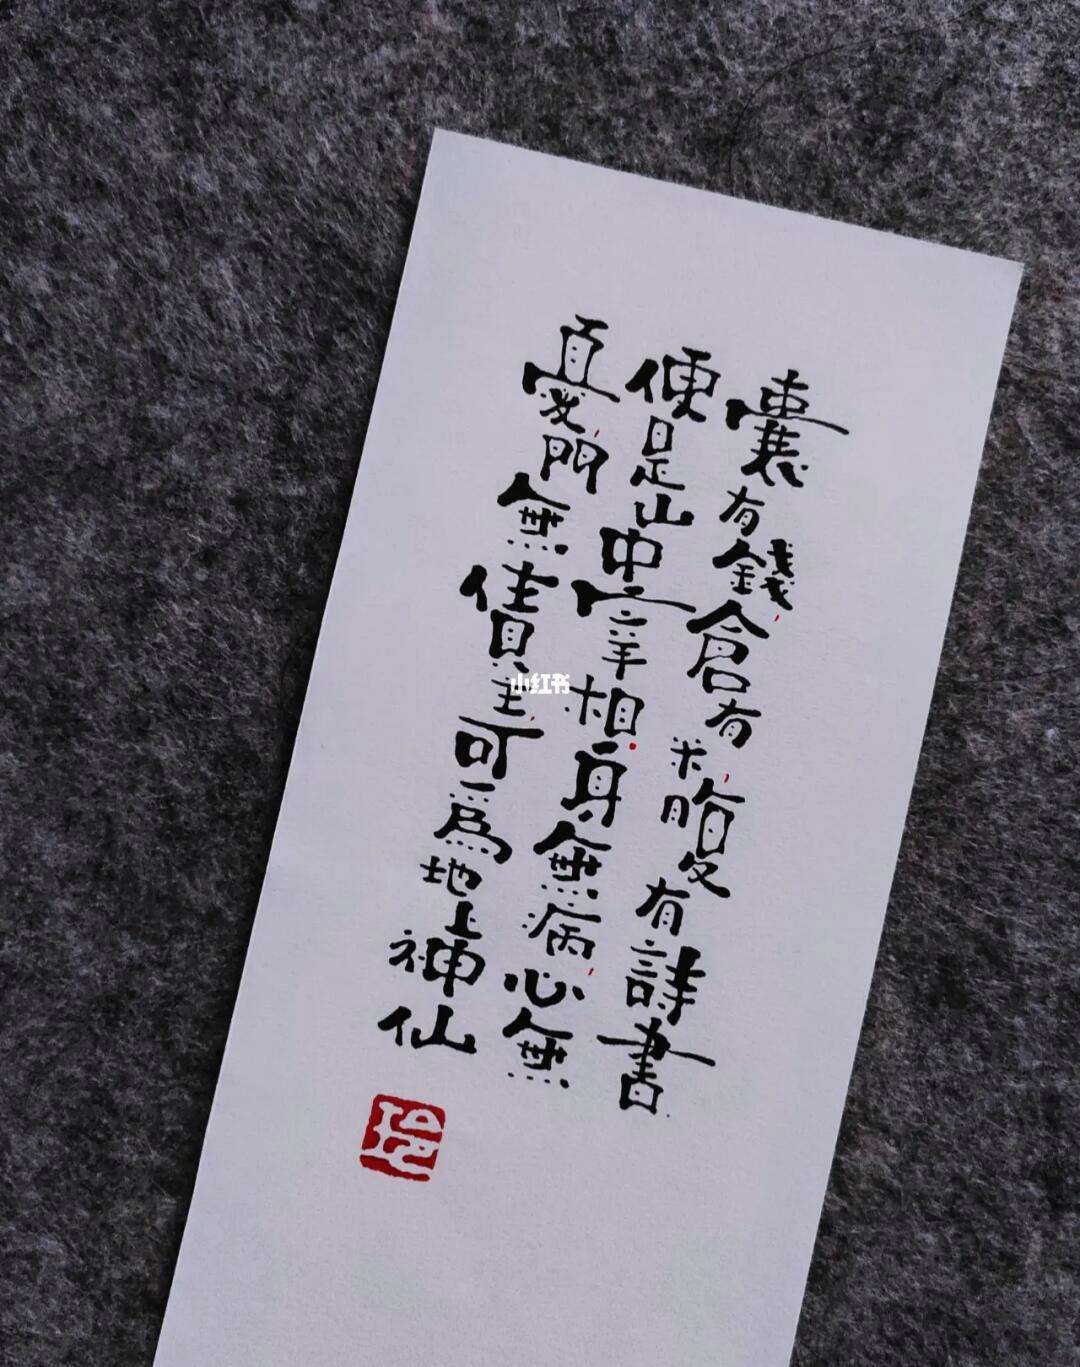 囊有錢，倉有米，腹有詩書
便是山中宰相.身無病，心無
憂，門無債主，可為地上神仙
小红书